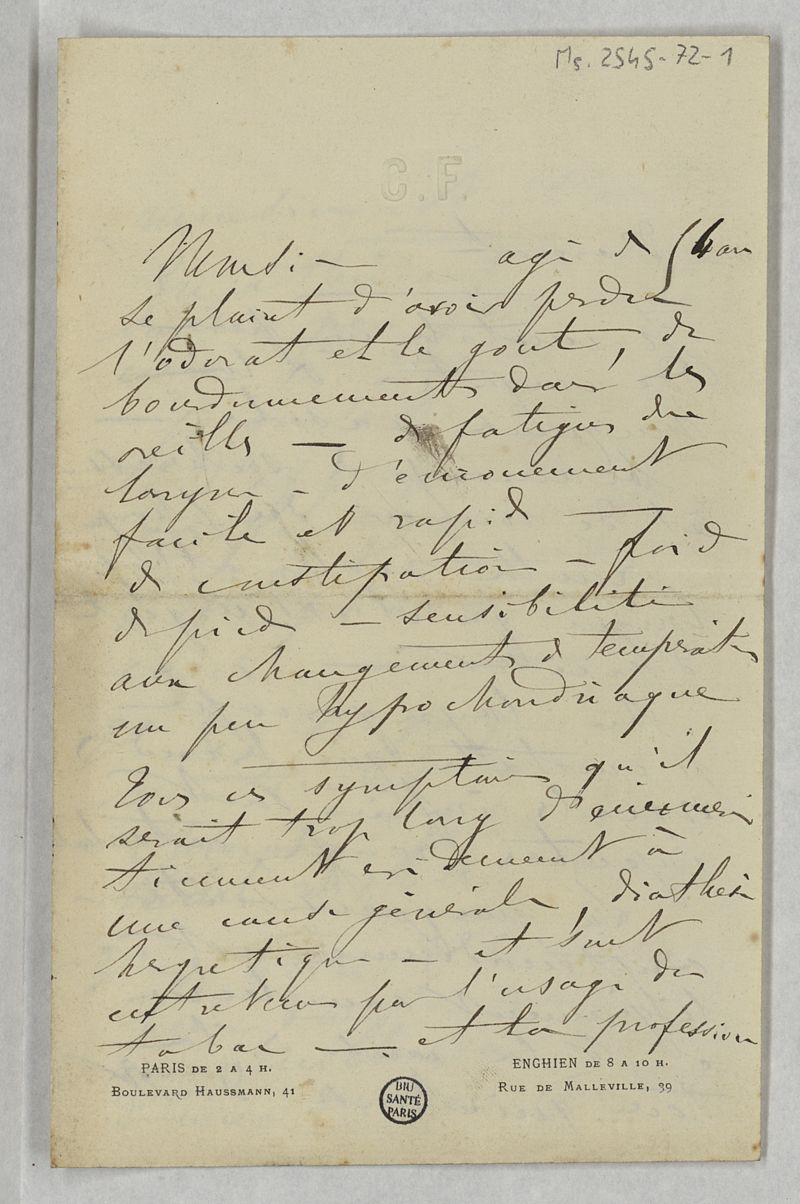 Ms. 2545-72-1
C.F.
Monsi— agé de 54 an
se plaint d'avoir perdu
l'odorat et le gout, de
bourdonnements dans les
oreilles — de fatigue du
larynx – d'enrouement
facile et rapide —
de constipation – froid
de pieds — sensibilité
aux changements de températ
un peu hypochondriaque
Tous ces symptômes qu'il
serait trop long d'énumérer
tiennent évidemment à
une cause générale, diathèse
herpetique — et sont
entretenus par l'usage du
tabac —. et la profession
PARIS DE 2 A 4 H.
BOULEVARD HAUSSMANN, 41
ENGHIEN DE 8 A 10 H.
RUE DE MALLEVILLE, 39
BIU
SANTÉ
PARIS